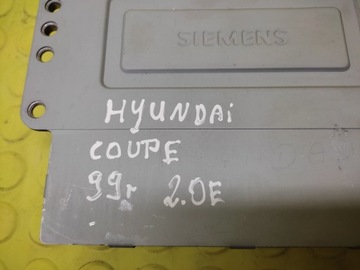 SIEMENS
HYUNDAi
COUPE
99r 2.0E